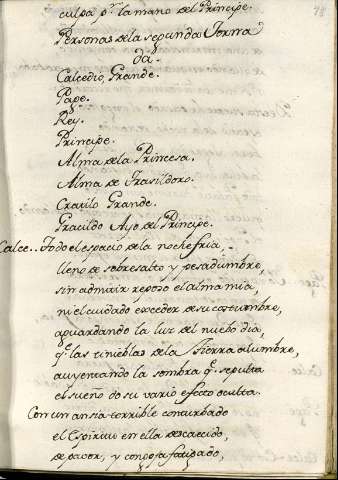 culpa pʳ. la mano del Principe.
Personas de la segunda Jorna
da.
Calcedio, Grande.
Page.
Rey.
Principe.
Alma de la Princesa.
Alma de Frasildoro.
Cratilo Grande.
Gracildo Ayo del Principe.
Calce.. Todo el espacio de la noche fria,
lleno de sobresalto y pesadumbre,
sin admitir reposo el alma mia,
ni el cuidado exceder de su costumbre,
aguardando la luz del nuebo dia,
qᵉ. las tinieblas de la tierra alumbre,
auyentando la sombra qᵉ. sepulta
el sueño do su vario efecto oculta.
Con un ansia terrible conturbado
el Espiritu en ella descaecido,
de pavor, y congoja fatigado,